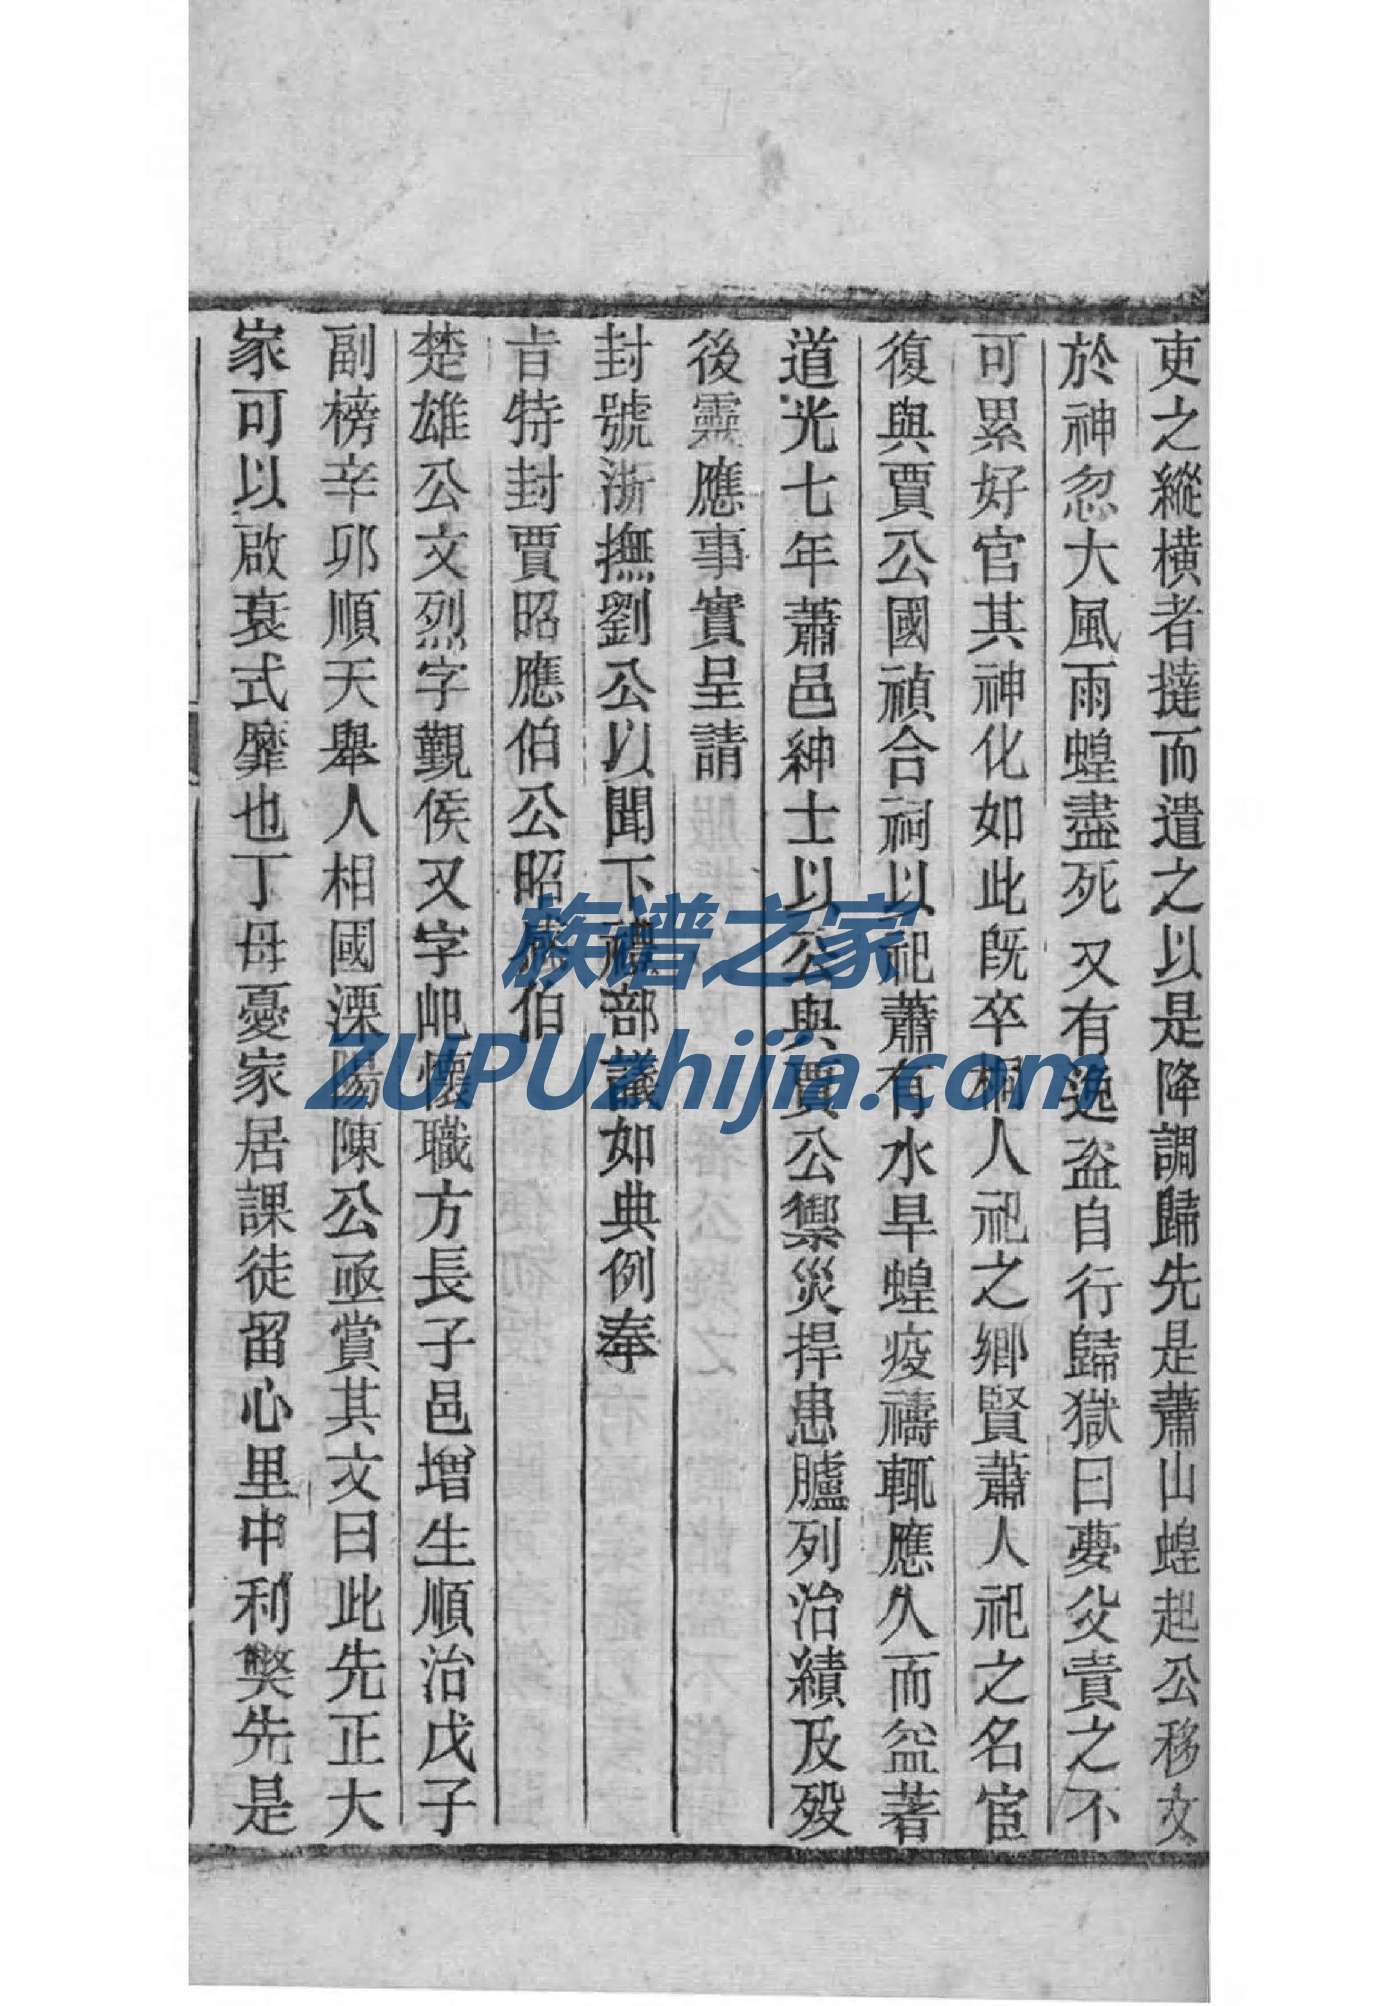 吏之縱橫者撻而遣之以是降調歸先是蕭山蝗起公移文
於神忽大風雨蝗盡死又有逸盜自行歸獄曰夢父責之不
可累好官其神化如此既卒桐人祀之鄉賢蕭人祀之名宦
復與賈公國禎合祠以祀蕭有水旱蝗疫禱輒應久而益著
道光七年蕭邑紳士以公與賈公禦災捍患臚列治績及歿
後靈應事實呈請
封號浙撫劉公以聞下禮部議如典例奉
旨特封賈昭應伯公昭感伯
楚雄公文烈字覲侯又字屺懷職方長子邑增生順治戊子
副榜辛卯順天舉人相國溧陽陳公亟賞其文曰此先正大
家可以啟衰式靡也丁母憂家居課徒留心里中利弊先是
族谱之家
ZUPUzhijia.com